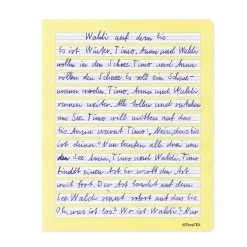 Waldi auf dem Eis
Es ist Winter. Timo, Anna und Waldi
wollen in den Schnee. Timo und Anna
rollen den Schnee. Es soll ein Schnee-
mann werden. Timo, Anna und Waldi
rennen weiter. Alle rollen und
am See. Timo will mitten auf das
Eis. Anna warnt Timo: „Nein, das Eis
ist dünn." Nun laufen alle drei um
den See. Anna, Timo und Waldi. Timo
findet einen Ast. Er wirft den Ast
weit fort. Der Ast landet auf dem
See. Waldi rennt sofort auf das Eis.
Oh, was ist los? Wo ist Waldi? Nun
©TimeTEX